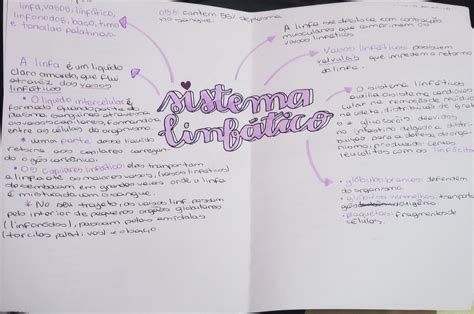 linfa, vasos linfático,
linfonodos, baço, timo
e tonsilas palatinas.
OBS: contém 5%
no sangue.
A linfa se desloca com contração
musculares que comprimem os
vasos linfáticos
Vasos linfáticos possuem
válvulas que impedem o retorno
da linfa.
A linfa é um líquido
claro amarelo, que flui
através dos vasos
linfáticos
• O líquido intercelular é
formado quando parte do
plasma sanguíneo atravessa
os vasos capilares, formando
entre as células do organismo.
• uma parte desse líquido
retorna aos capilares
do gás carbônico.
• Os capilares linfático: eles transportam
a linfa até os maiores vasos, (vasos linfáticos)
desembocam em grandes veias onde a linfa
é misturada com o sangue.
* No seu trajeto, os vasos linf passam
pelo interior de pequenos órgãos globulares
(linfonodos), passam pelas amídalas
e o baço.
sistema
linfático
• O sistema linfático
auxilia o sistema cardiovas
cular na remoção de resíduos
na coleta
no intestino delgado
para a defesa do
produzindo certos
leucócitos como os linfócitos
• glóbulos brancos: defendem
do organismo
• glóbulos vermelhos: transporta
gás oxigênio
• plaquetas: fragmentos de
células.